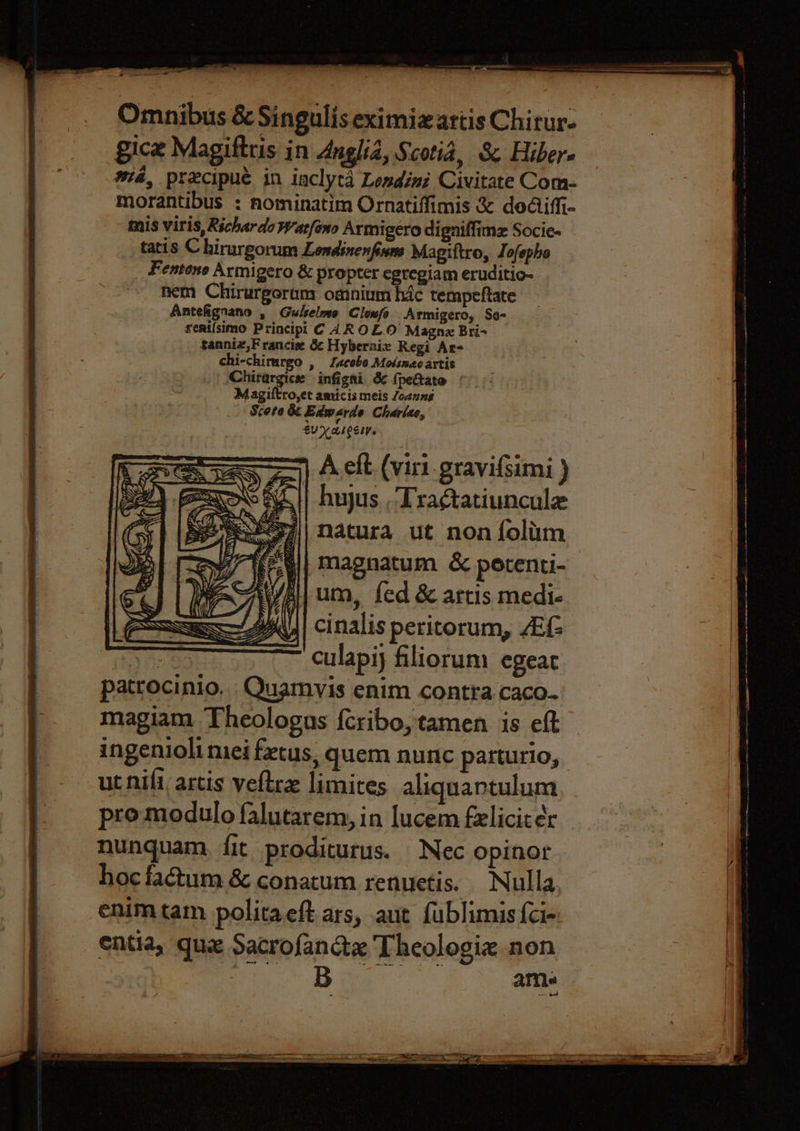 Omnibus & Singulis eximiæ artis Chirur-
gicæ Magiſtris in Angliâ, Scotiâ, & Hiber-
niâ, præcipuè in inclytâ Londini Civitate Com-
morantibus : nominatim Ornatiſſimis & doctiſſi-
mis viris, Richardo Watſono Armigero digniſſimæ Socie-
tatis Chirurgorum Londinenſium Magiſtro, Joſepho
Fentono Armigero & propter egregiam eruditio-
nem Chirurgorum omnium hâc tempeſtate
Anteſignano , Gulielmo Clowſo Armigero, Se-
reniſsimo Principi CAROLO Magnæ Bri-
tanniæ, Franciæ & Hyberniæ Regi Ar-
chi-chirurgo , Iacobo Molinæo artis
Chirurgicæ inſigni & ſpectato
Magiſtro, et amicis meis Ioanni
Scoto & Edwardo Charlao,
εὐχαίρειν.
EA eſt (viri graviſsimi )
hujus Tractatiunculæ
natura ut non ſolùm
magnatum & potenti-
um, ſed & artis medi-
cinalis peritorum, Æſ-
culapij filiorum egeat
patrocinio. Quamvis enim contra caco-
magiam Theologus ſcribo, tamen is eſt
ingenioli mei fætus, quem nunc parturio,
ut niſi artis veſtræ limites aliquantulum
pro modulo ſalutarem, in lucem fæliciter
nunquam ſit proditurus. Nec opinor
hoc factum & conatum renuetis. Nulla
enim tam polita eſt ars, aut ſublimis ſci-
entia, quæ Sacroſanctæ Theologiæ non
B am-